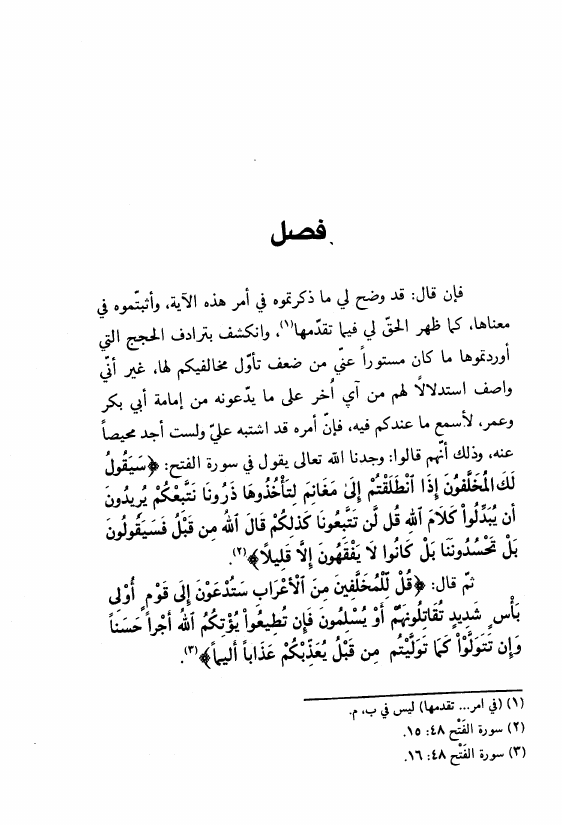 فصل
فإن قال: قد وضح لي ما ذكرتموه في أمر هذه الآية، وأثبتّموه في
معناها، كما ظهر الحقّ لي فيما تقدّمها(١)، وانكشف بترادف الحجج التي
أوردتموها ما كان مستوراً عنّي من ضعف تأوّل مخالفيكم لها، غير أنّي
واصف استدلالاً لهم من آي أُخر على ما يدّعونه من إمامة أبي بكر
وعمر، لأسمع ما عندكم فيه، فإنّ أمره قد اشتبه عليّ ولست أجد محيصاً
عنه، وذلك أنّهم قالوا: وجدنا الله تعالى يقول في سورة الفتح: ﴿سَيَقُولُ
لَكَ المُخَلَّفُونَ إِذَا ٱنطَلَقْتُمْ إِلَىٰ مَغَانِمَ لِتَأْخُذُوهَا ذَرُونَا نَتَّبِعْكُمْ يُرِيدُونَ
أَن يُبَدِّلُواْ كَلَامَ ٱللهِ قُل لَّن تَتَّبِعُونَا كَذلِكُمْ قَالَ ٱللهُ مِن قَبْلُ فَسَيَقُولُونَ
بَلْ تَحْسُدُونَنَا بَلْ كَانُوا لَا يَفْقَهُونَ إِلَّا قَلِيلاً﴾(٢).
ثمّ قال: ﴿قُلْ لِّلْمُخَلَّفِينَ مِنَ ٱلْأَعْرَابِ سَتُدْعَوْنَ إِلَى قَوْمٍ أُوْلِى
بَأْسٍ شَدِيدٍ تُقَاتِلُونَهُمْ أَوْ يُسْلِمُونَ فَإِن تُطِيعُواْ يُؤْتِكُمُ ٱللهُ أَجْراً حَسَناً
وَإِن تَتَوَلَّوْاْ كَمَا تَوَلَّيْتُم مِن قَبْلُ يُعَذِّبْكُمْ عَذَاباً أَلِيماً﴾(٣).
(١) (في امر... تقدمها) ليس في ب، م.
(٢) سورة الفَتْح ٤٨: ١٥.
(٣) سورة الفَتْح ٤٨: ١٦.